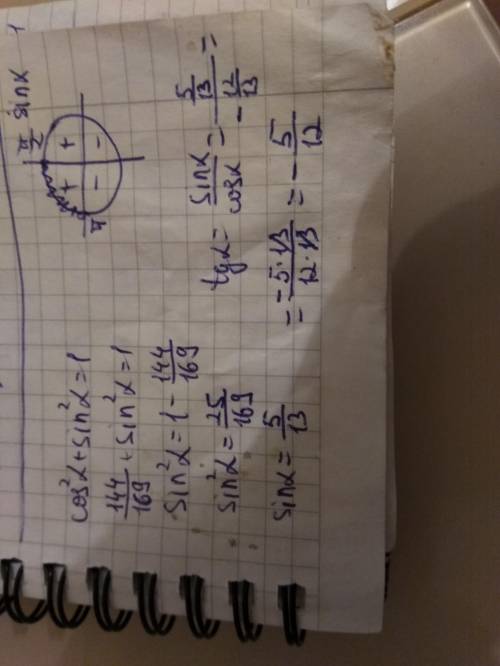 cos²α + sin²α = 1
144/169 + sin²α = 1
sin²α = 1 - 144/169
sin²α = 25/169
sinα = 5/13
π/2 sinα
+ +
π - -
tgα = sinα/cosα = (5/13)/(-12/13) =
= -5·13/12·13 = -5/12